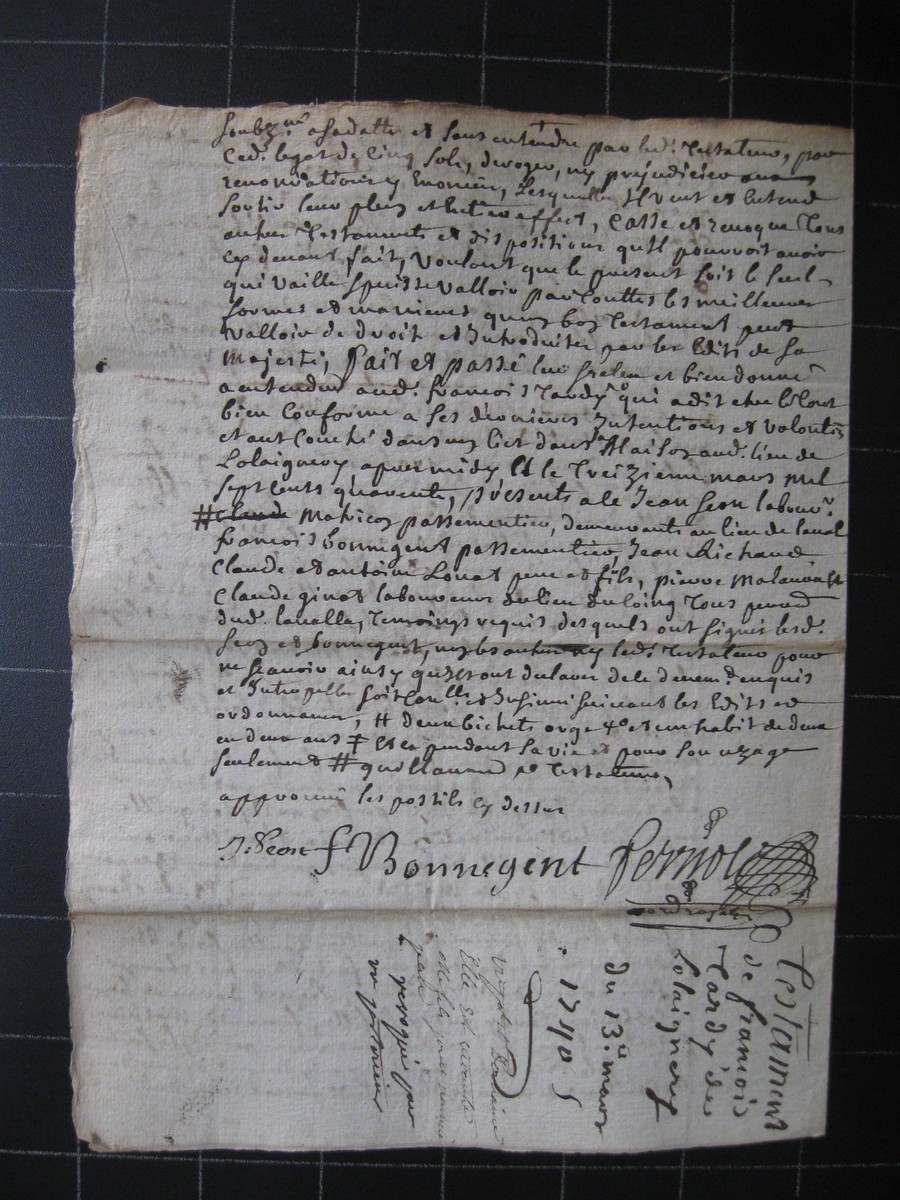 et sans entendre par led. Testateur, par
led. legat de Cinq sols, deroger, ny prejudicier
renonciations y Enoncées, Lesquelles Il veut et Entend
sortir leur plein et Entier effect, Casse et revoque Tous
autres Testaments et dispositions qu'Il pourroit avoir
cy devant fait, voulant que le present soit le seul
qui vaille & puisse valloir par touttes les meilleures
formes et manieres qu'un bon Testament peut
valloir de droit et Introduites par les Edits de sa
Majesté, fait et passé leu & releu et bien donné
a entendre aud. françois Tardy qui a dit etre le tout
bien Conforme a ses dernieres Intentions et volontés
etant Couché dans un lict dans sa Maison aud. lieu de
Lolaignery apres midy Et le Treizieme mars mil
sept cents quarante, presents a ce Jean seon labour.
# Claude Matricon passementier, demeurants au lieu de laval
françois Bonnegent passementier, Jean Richard
Claude et antoine Lonat pere et fils, pierre
Claude ginot laboureurs du lieu du Coing Tous
dud. lavalla, Temoings requis desquels ont signé lesd.
seon et bonnegent, non les autres ny led. Testateur pour
ne scavoir ainsy qu'Ils ont declaré de ce deuem. enquis
et Interpellés soit Conllé et Insinué suivant les Edits et
ordonnances, # deux bichets orge 4° et un habit de deux
en deux ans et ce pendant sa vie et pour son uzage
seulement # guillaume
approuvé les postils cy dessus
J. Seon f Bonnegent
Testament
de françois
Tardy de
Lolaignery
du 13e mars
1740
revoqué par